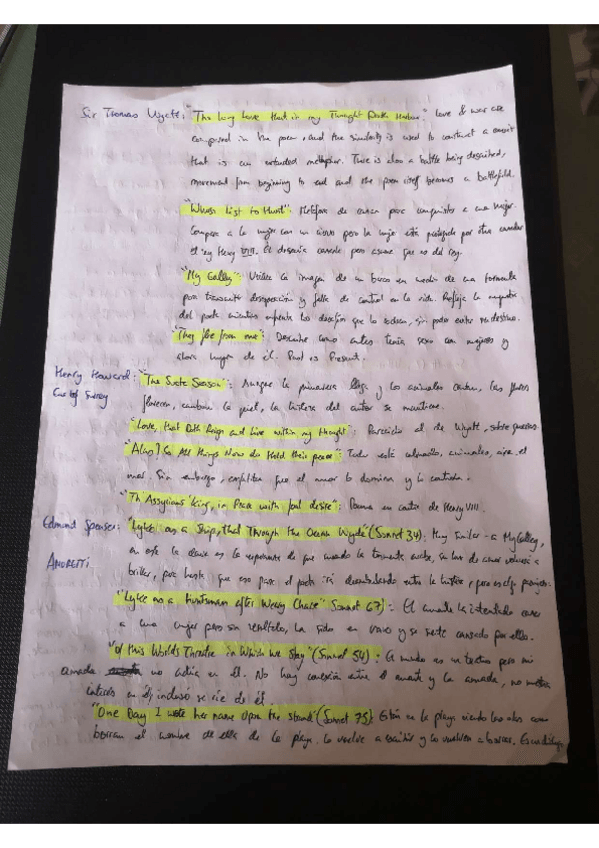 Sir Thomas Wyatt: "The long love that in my Thought Doth Harbor": love & war are
compared in the poem, and the similarity is used to construct a conceit
that is an extended metaphor. There is also a battle being described,
movement from beginning to end and the poem itself becomes a battlefield.
"Whoso List to Hunt": Metáfora de para conquistar a una mujer.
Compara a la mujer con un ciervo pero la mujer está protegida por otro cazador
el rey Henry VIII. El cazarla pero asume que es del rey.
"My Galley": Utiliza la imagen de un barco en medio de una tormenta
para transmitir desesperación y falta de control en la vida. Refleja la
del poeta mientras enfrenta los desafíos que lo rodean, sin poder evitar su destino.
"They flee from me": Describe como antes tenía sexo con mujeres y
ahora huyen de él. Past vs Present.
Henry Howard: "The Soote Season": Aunque la primavera llega y los animales cantan, las flores
Earl of Surrey florecen, cambian la piel, la tristeza del autor se mantiene.
"Love, that Doth Reign and Live within my thought": Parecido al de Wyatt, sobre guerras.
"Alas! So All things Now do Hold their peace": Todo está calmado, animales, aire, el
mar. Sin embargo, explica que el amor lo domina y lo controla.
"Th'Assyrians' King, in Peace with foul desire": Poema en contra de Henry VIII.
Edmund Spenser: "Lyke as a Ship, that Through the Ocean Wyde" (Sonnet 34): Muy similar a My Galley,
en este la clave es la esperanza de que cuando la tormenta acabe, su luz de amor volverá a
AMORETTI brillar, pero hasta que eso pase el poeta irá deambulando entre la tristeza, pero es algo pasajero.
"Lyke as a Huntsman after Weary Chace" (Sonnet 67): El amante ha intentado cazar
a una mujer pero sin resultado, ha sido en vano y se siente cansado por ello.
"Of this Worlds Theatre in Which we Stay" (Sonnet 54): El mundo es un teatro pero mi
amada no actúa en él. No hay conexión entre el amante y la amada, no
interés en él, incluso se ríe de él.
"One Day I wrote her name Upon the strand" (Sonnet 75): Están en la playa viendo las olas como
borran el nombre de ella de la playa. Lo vuelve a escribir y lo vuelven a borrar.